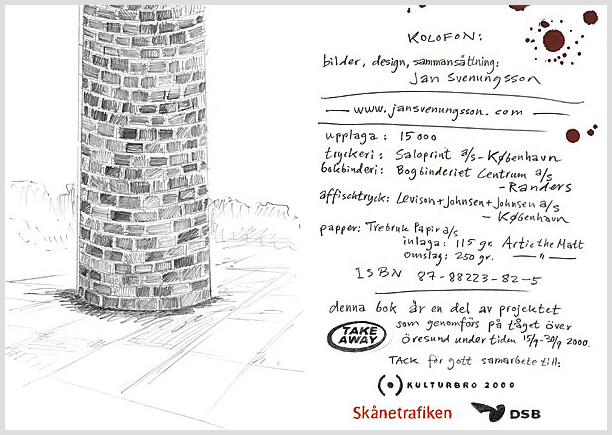 KOLOFON:
bilder, design, sammansättning:
Jan Svenungsson
www.jansvenungsson.com
upplaga: 15000
tryckeri: Saloprint a/s - København
bokbinderi: Bogbinderiet Centrum a/s
- Randers
affischtryck: Levison+Johnsen+Johnsen a/s
- København
papper: Trebruk Papir a/s
inlaga: 115 gr. Artic the Matt
omslag: 250 gr. — " —
ISBN 87-88223-82-5
denna bok är en del av projektet
TAKE AWAY som genomförs på tåget över
öresund under tiden 15/9-30/9 2000.
TACK för gott samarbete till:
KULTURBRO 2000
Skånetrafiken DSB